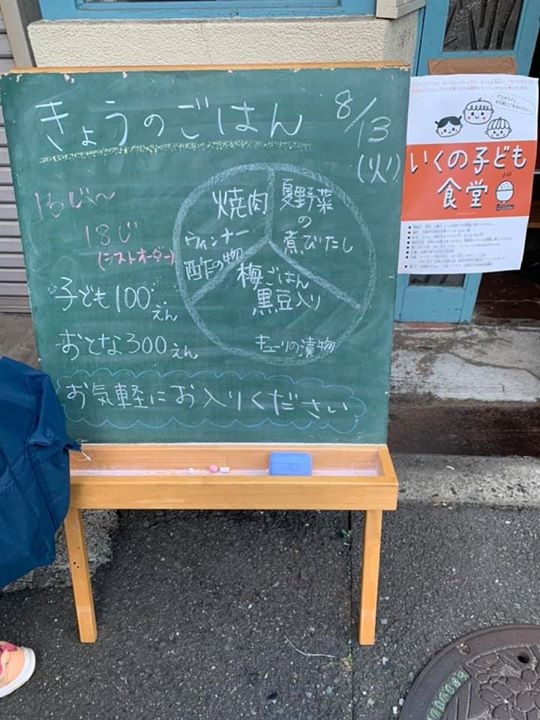 きょうのごはん
8/13
(火)
16じ〜
18じ
(ラストオーダー)
子ども100えん
おとな300えん
焼肉
ウィンナー
酢の物
夏野菜
の
煮びたし
梅ごはん
黒豆入り
キューリの漬物
お気軽にお入りください
いくの子ども
食堂